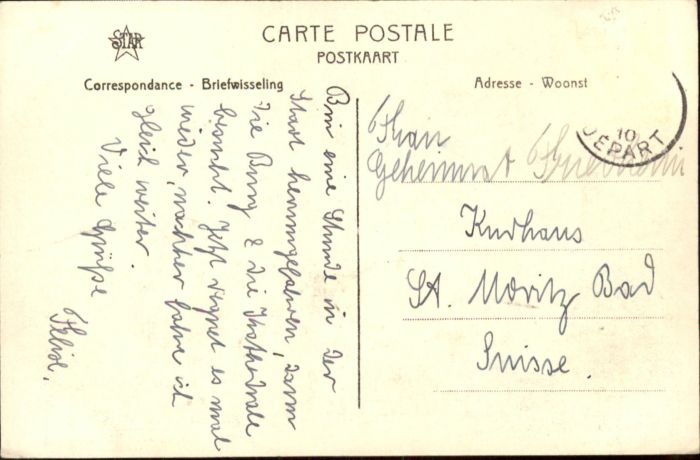 STAR
CARTE POSTALE
POSTKAART
Correspondance - Briefwisseling
Adresse - Woonst
Bin eine Stunde in der
Stadt herumgefahren, dann
die Burg & die Kathedrale
besucht. Jetzt regnet es mal
wieder, nachher fahre ich
gleich weiter.
Viele Grüße
10
DEPART
Frau
Geheimrat
Kurhaus
St. Moritz Bad
Suisse.